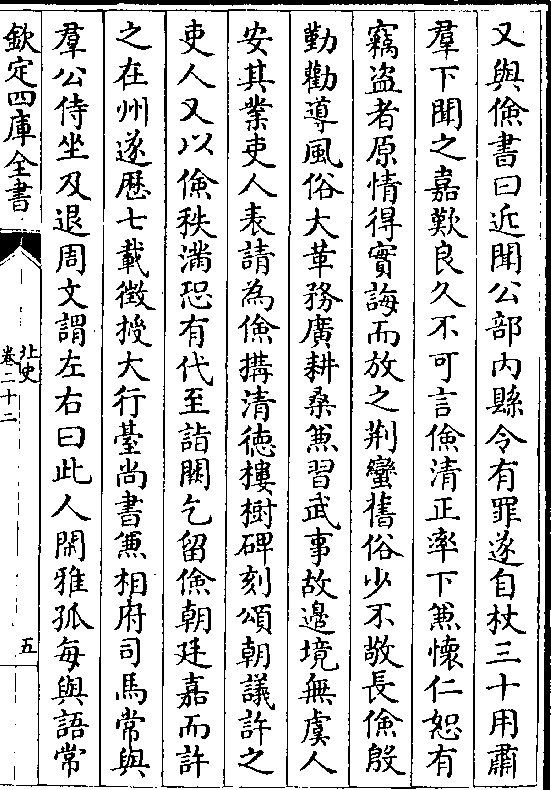 又與儉書曰近聞公部内縣令有罪遂自杖三十用肅
羣下聞之嘉歎良久不可言儉清正率下兼懷仁恕有
竊盗者原情得實誨而放之荆蠻舊俗少不敬長儉殷
勤勸導風俗大革務廣耕桑兼習武事故邊境無虞人
安其業吏人表請為儉搆清徳樓樹碑刻頌朝議許之
吏人又以儉秩滿恐有代至詣闕乞留儉朝廷嘉而許
之在州遂歴七載徵授大行臺尚書兼相府司馬常與
羣公侍坐及退周文謂左右曰此人閑雅孤每與語常
欽定四庫全書
北史
卷二十二
五